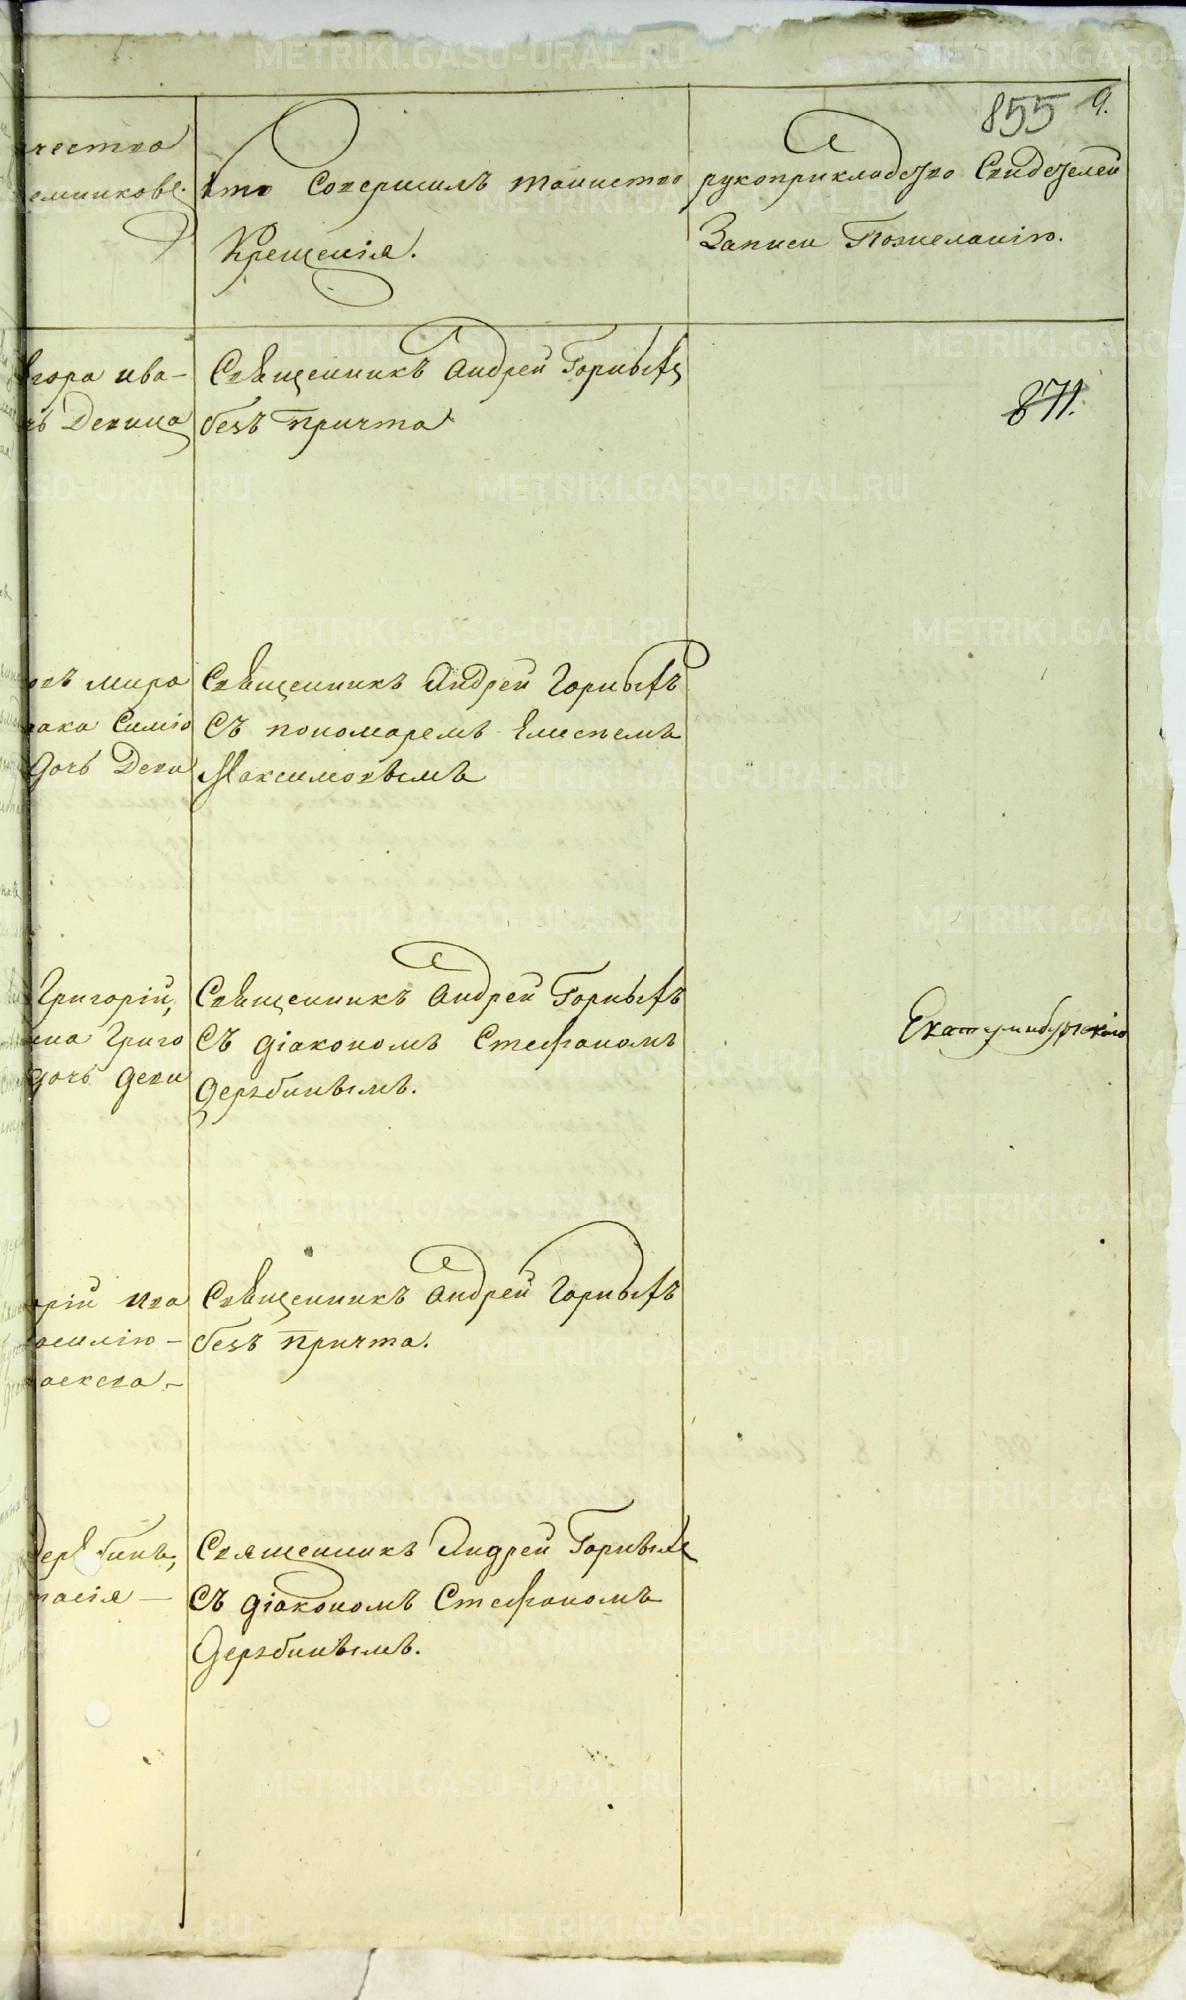 855 9.
чества
емниковъ.
Кто Совершилъ таинство
Крещенія.
рукоприкладство Свидетелей
Записи Пожеланію.
871.
гора ива-
чъ Девица
Священникъ Андрей Горныхъ
безъ причта
мира
Симіо
дочь Деви
Священникъ Андрей Горныхъ
Съ пономаремъ Елисѣемъ
Максимовымъ
Григорій,
ина Григо
дочь деви
Священникъ Андрей Горныхъ
Съ діакономъ Стефаномъ
Дерябинымъ.
Екатеринбургскаго
орій ива
асилію-
раскева-
Священникъ Андрей Горныхъ
безъ причта.
Дерябинъ,
тасія -
Священникъ Андрей Горныхъ
Съ діакономъ Стефаномъ
Дерябинымъ.
METRIKI.GASO-URAL.RU